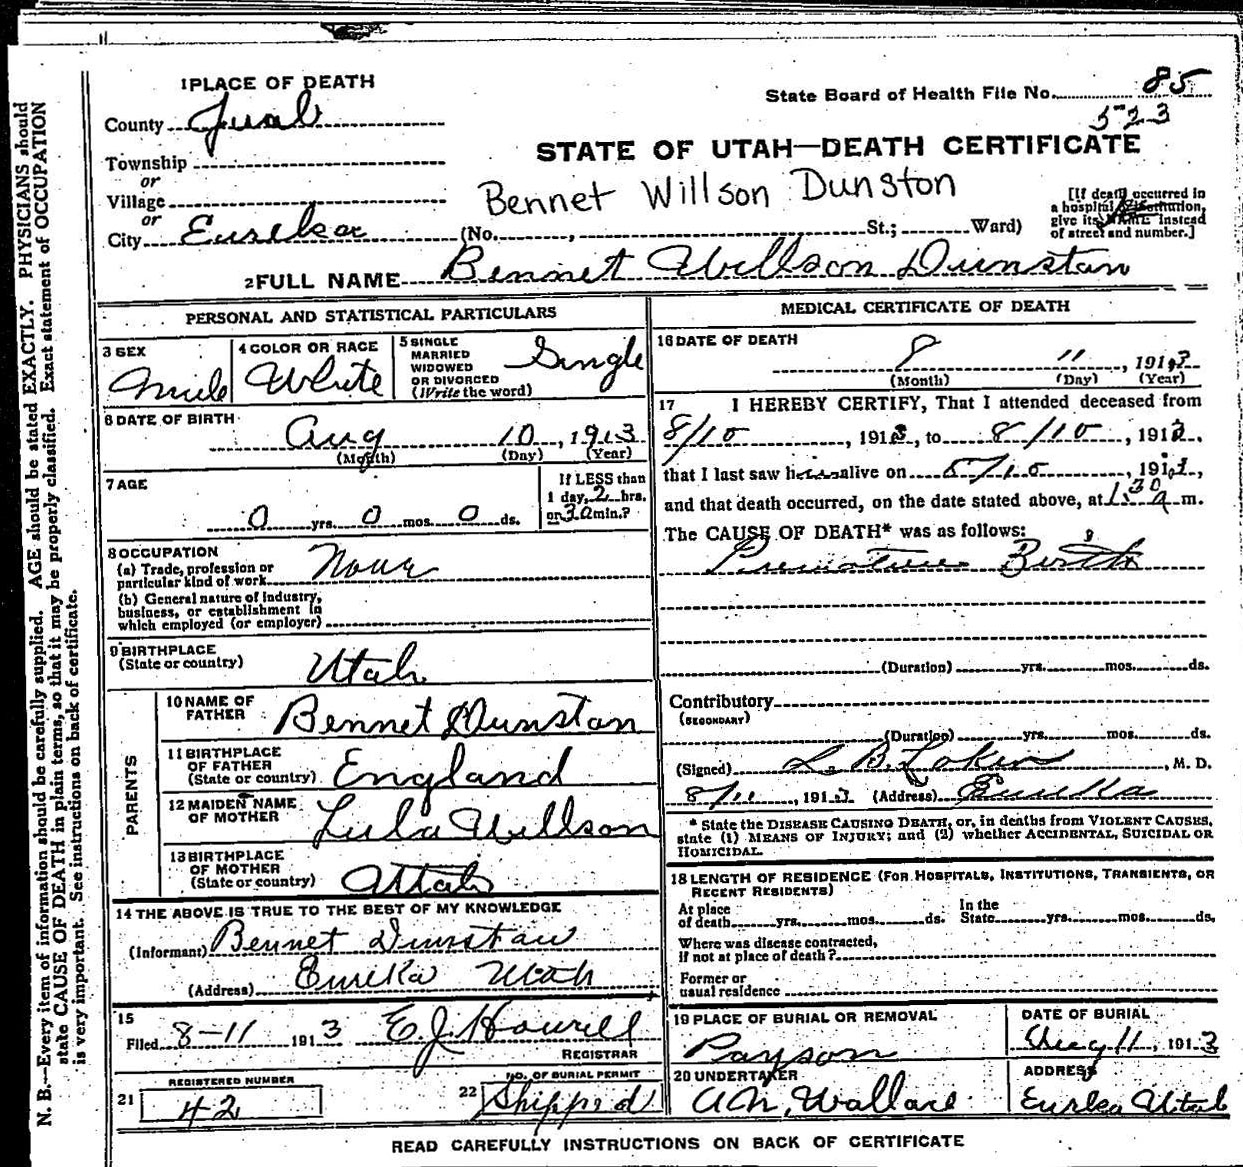 1 PLACE OF DEATH
County Juab
State Board of Health File No. 85
523
Township
or
Village
or
City Eureka (No. , St.; Ward)
STATE OF UTAH—DEATH CERTIFICATE
Bennet Willson Dunston
[If death occurred in
a hospital or institution,
give its NAME instead
of street and number.]
2 FULL NAME Bennet Willson Dunstan
PERSONAL AND STATISTICAL PARTICULARS
3 SEX
Male
4 COLOR OR RACE
White
5 SINGLE
MARRIED
WIDOWED
OR DIVORCED
(Write the word)
Single
6 DATE OF BIRTH
Aug 10, 1913
(Month) (Day) (Year)
7 AGE
0 yrs. 0 mos. 0 ds.
If LESS than
1 day, 2 hrs.
or 30 min.?
8 OCCUPATION
(a) Trade, profession or
particular kind of work None
(b) General nature of industry,
business, or establishment in
which employed (or employer)
9 BIRTHPLACE
(State or country) Utah
PARENTS
10 NAME OF
FATHER Bennet Dunstan
11 BIRTHPLACE
OF FATHER
(State or country) England
12 MAIDEN NAME
OF MOTHER Lula Willson
13 BIRTHPLACE
OF MOTHER
(State or country) Utah
14 THE ABOVE IS TRUE TO THE BEST OF MY KNOWLEDGE
(Informant) Bennet Dunstan
(Address) Eureka Utah
15
Filed 8-11 1913 E. J. Howell
REGISTRAR
21 REGISTERED NUMBER
42
22 NO. OF BURIAL PERMIT
Shipped
MEDICAL CERTIFICATE OF DEATH
16 DATE OF DEATH
8 11, 1913
(Month) (Day) (Year)
17 I HEREBY CERTIFY, That I attended deceased from
8/10, 1913, to 8/10, 1913,
that I last saw him alive on 8/10, 1913,
and that death occurred, on the date stated above, at 1:30 a m.
The CAUSE OF DEATH* was as follows:
Premature Birth
(Duration) yrs. mos. ds.
Contributory
(SECONDARY)
(Duration) yrs. mos. ds.
(Signed) L. B. Lakin, M. D.
8/11, 1913 (Address) Eureka
* State the DISEASE CAUSING DEATH, or, in deaths from VIOLENT CAUSES,
state (1) MEANS OF INJURY; and (2) whether ACCIDENTAL, SUICIDAL OR
HOMICIDAL.
18 LENGTH OF RESIDENCE (FOR HOSPITALS, INSTITUTIONS, TRANSIENTS, OR
RECENT RESIDENTS)
At place
of death yrs. mos. ds. In the
State yrs. mos. ds.
Where was disease contracted,
if not at place of death?
Former or
usual residence
19 PLACE OF BURIAL OR REMOVAL
Payson
DATE OF BURIAL
Aug 11, 1913
20 UNDERTAKER
A. N. Wallace
ADDRESS
Eureka Utah
READ CAREFULLY INSTRUCTIONS ON BACK OF CERTIFICATE
N. B.—Every item of information should be carefully supplied. AGE should be stated EXACTLY. PHYSICIANS should
state CAUSE OF DEATH in plain terms, so that it may be properly classified. Exact statement of OCCUPATION
is very important. See instructions on back of certificate.